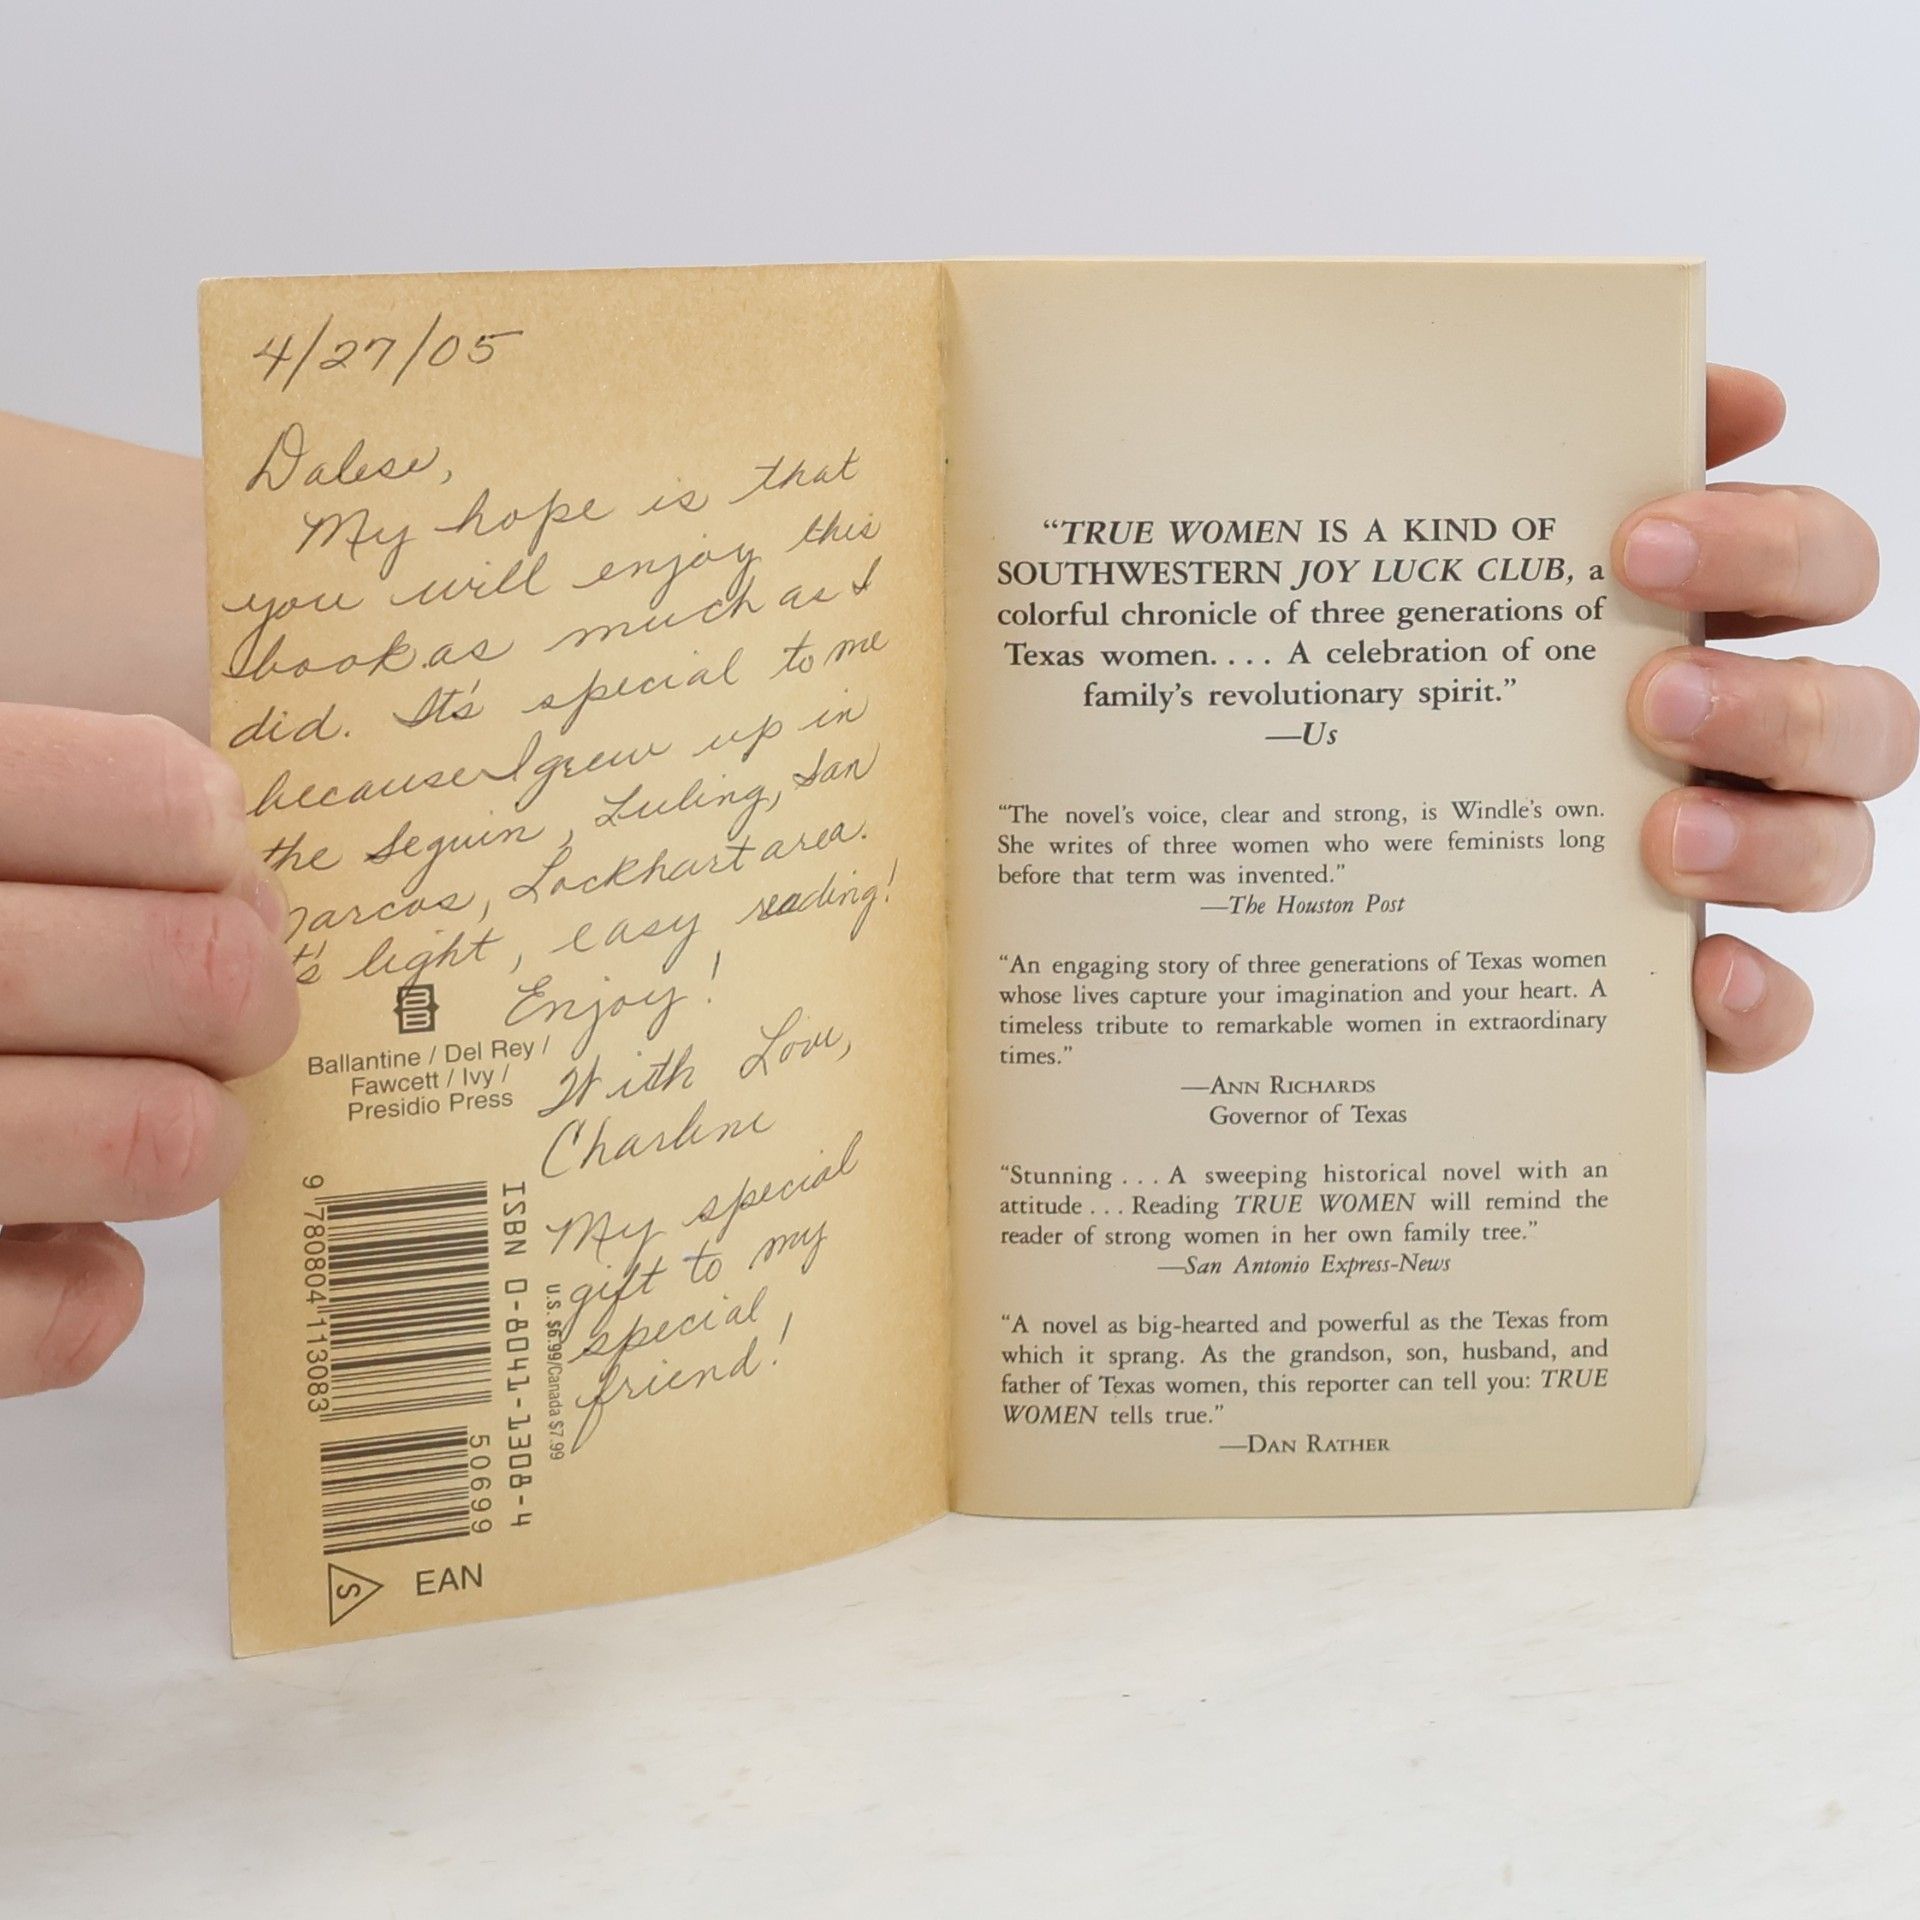 4/27/05
Dalese,
My hope is that
you will enjoy this
book as much as I
did. It's special to me
because I grew up in
the Seguin, Luling, San
Marcos, Lockhart area.
It's light, easy reading!
Enjoy!
With Love,
Charlene
My special
gift to my
special
friend!
Ballantine / Del Rey /
Fawcett / Ivy /
Presidio Press
9 780804 113083
50699
ISBN 0-8041-1308-4
U.S. $6.99/Canada $7.99
S
EAN
“TRUE WOMEN IS A KIND OF
SOUTHWESTERN JOY LUCK CLUB, a
colorful chronicle of three generations of
Texas women. . . . A celebration of one
family’s revolutionary spirit.”
—Us
“The novel’s voice, clear and strong, is Windle’s own.
She writes of three women who were feminists long
before that term was invented.”
—The Houston Post
“An engaging story of three generations of Texas women
whose lives capture your imagination and your heart. A
timeless tribute to remarkable women in extraordinary
times.”
—ANN RICHARDS
Governor of Texas
“Stunning . . . A sweeping historical novel with an
attitude . . . Reading TRUE WOMEN will remind the
reader of strong women in her own family tree.”
—San Antonio Express-News
“A novel as big-hearted and powerful as the Texas from
which it sprang. As the grandson, son, husband, and
father of Texas women, this reporter can tell you: TRUE
WOMEN tells true.”
—DAN RATHER